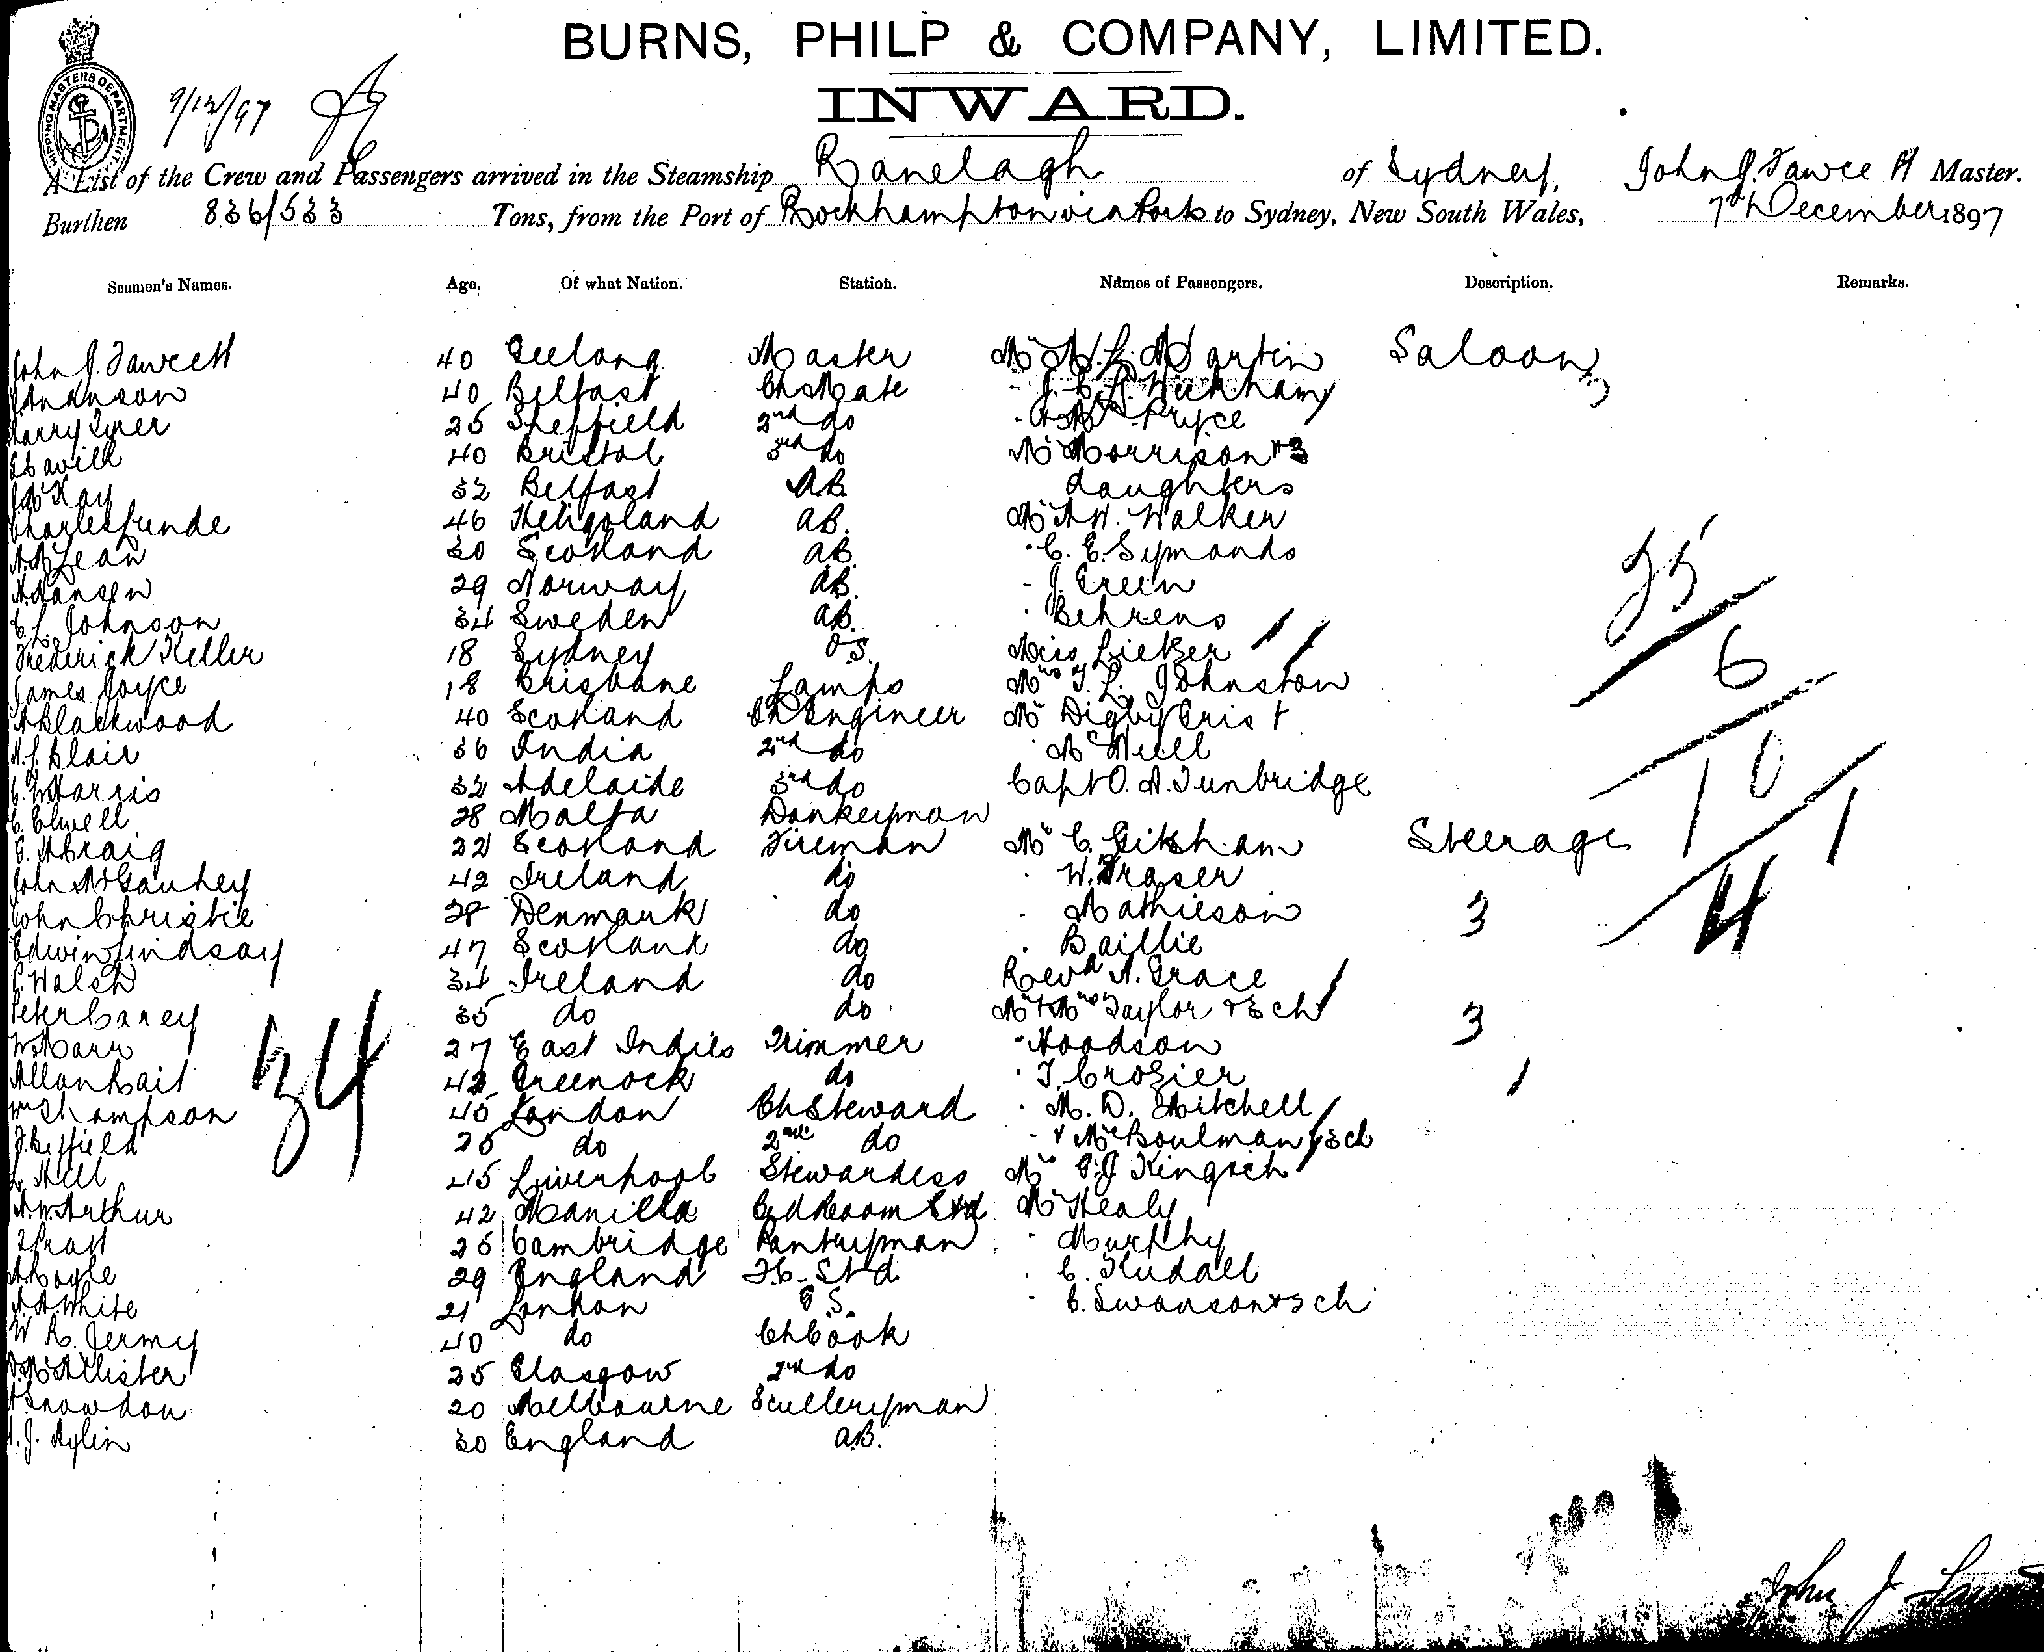 BURNS, PHILP & COMPANY, LIMITED.
INWARD.
SHIPPING MASTERS DEPARTMENT
9/12/97
A List of the Crew and Passengers arrived in the Steamship Ranelagh of Sydney, John J. Fawcett Master.
Burthen 836/533 Tons, from the Port of Rockhampton via Ports to Sydney, New South Wales, 7th December 1897
Seamen's Names. Age. Of what Nation. Station. Names of Passengers. Description. Remarks.
John J. Fawcett 40 Geelong Master Mr Martin Saloon
40 Belfast Ch Mate Wickham
Harry Tyrer 25 Sheffield 2nd do Pryce
40 Bristol 3rd do Mrs Morrison + 3
McKay 32 Belfast AB daughters
Charles Lunde 46 Heligoland AB. Mr A.W. Walker
A McLean 30 Scotland AB. C. E. Symonds
Hansen 29 Norway AB. J. Green
C. L. Johnson 34 Sweden AB. Behrens
Frederick Keller 18 Sydney O.S. Miss Lieker
James Joyce 18 Brisbane Lamps Mrs T. L. Johnston
A Blackwood 40 Scotland Ch Engineer Mr Digby
Blair 36 India 2nd do McNeill
Harris 32 Adelaide 3rd do Capt O. A. Tunbridge
C. Elwell 28 Malta Donkeyman
Craig 22 Scotland Fireman Mr C. Giksham Steerage
John McGauhey 42 Ireland do W. Fraser
John Christie 28 Denmark do Mathieson 3
Edwin Lindsay 47 Scotland do Baillie
Walsh 34 Ireland do Revd A. Grace
Peter Carey 35 do do Mr + Mrs Taylor + 3 ch 3
Marr 27 East Indies Trimmer Hoodson
Allan Tait 42 Greenock do T. Crozier
Wm Thompson 45 London Ch Steward M. D. Mitchell
25 do 2nd do + Mrs Boulman 3 ch
Hill 45 Liverpool Stewardess Mrs
McArthur 42 Manilla Bedroom Std Mr Healy
Pratt 25 Cambridge Pantryman Murphy
A Boyle 29 England F.C. Std C. Kudall
White 21 London G.S. C. Swanson + 3 ch
W R. Jermy 40 do Ch Cook
McAllister 25 Glasgow 2nd do
Snowdon 20 Melbourne Sculleryman
30 England AB.
34
25
6
10
1
4
John J